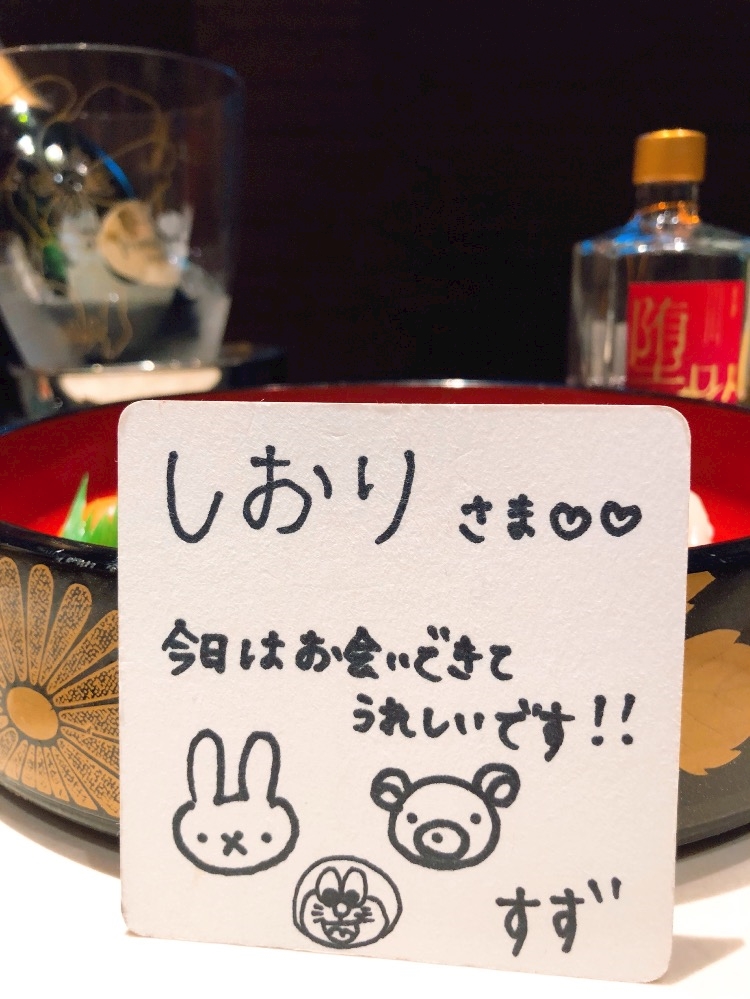 しおり さま♡♡
今日はお会いできて
うれしいです!!
すず
堕